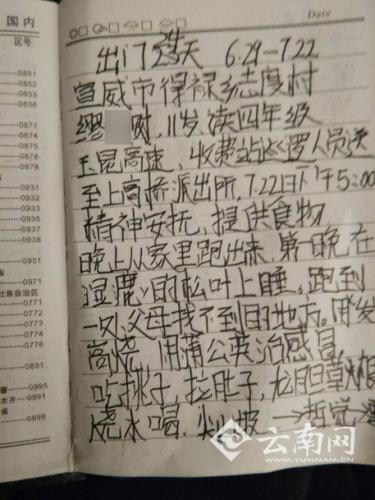 国内
区号
Date
出门23天 24 6.29-7.22
宣威市得禄乡志度村
缪 财,11岁读四年级
玉昆高速,收费站巡逻人员送
至上高桥派出所,7.22日下午5:00
精神安抚,提供食物
晚上从家里跑出来.第一晚在
湿漉漉的松叶上睡,跑到
一处父母找不到的地方,
高烧 用蒲公英治感冒
吃桃子,拉肚子,龙胆草
烧水喝.
0851
0852
0853
0854
0856
0871
0874
0873
0877
0878
0879
0931
0932
0936
0937
0938
0941
0971
0776
0771
0772
0773
0774
0776
0891
0995
0996
0998
云南网
WWW.YUNNAN.CN